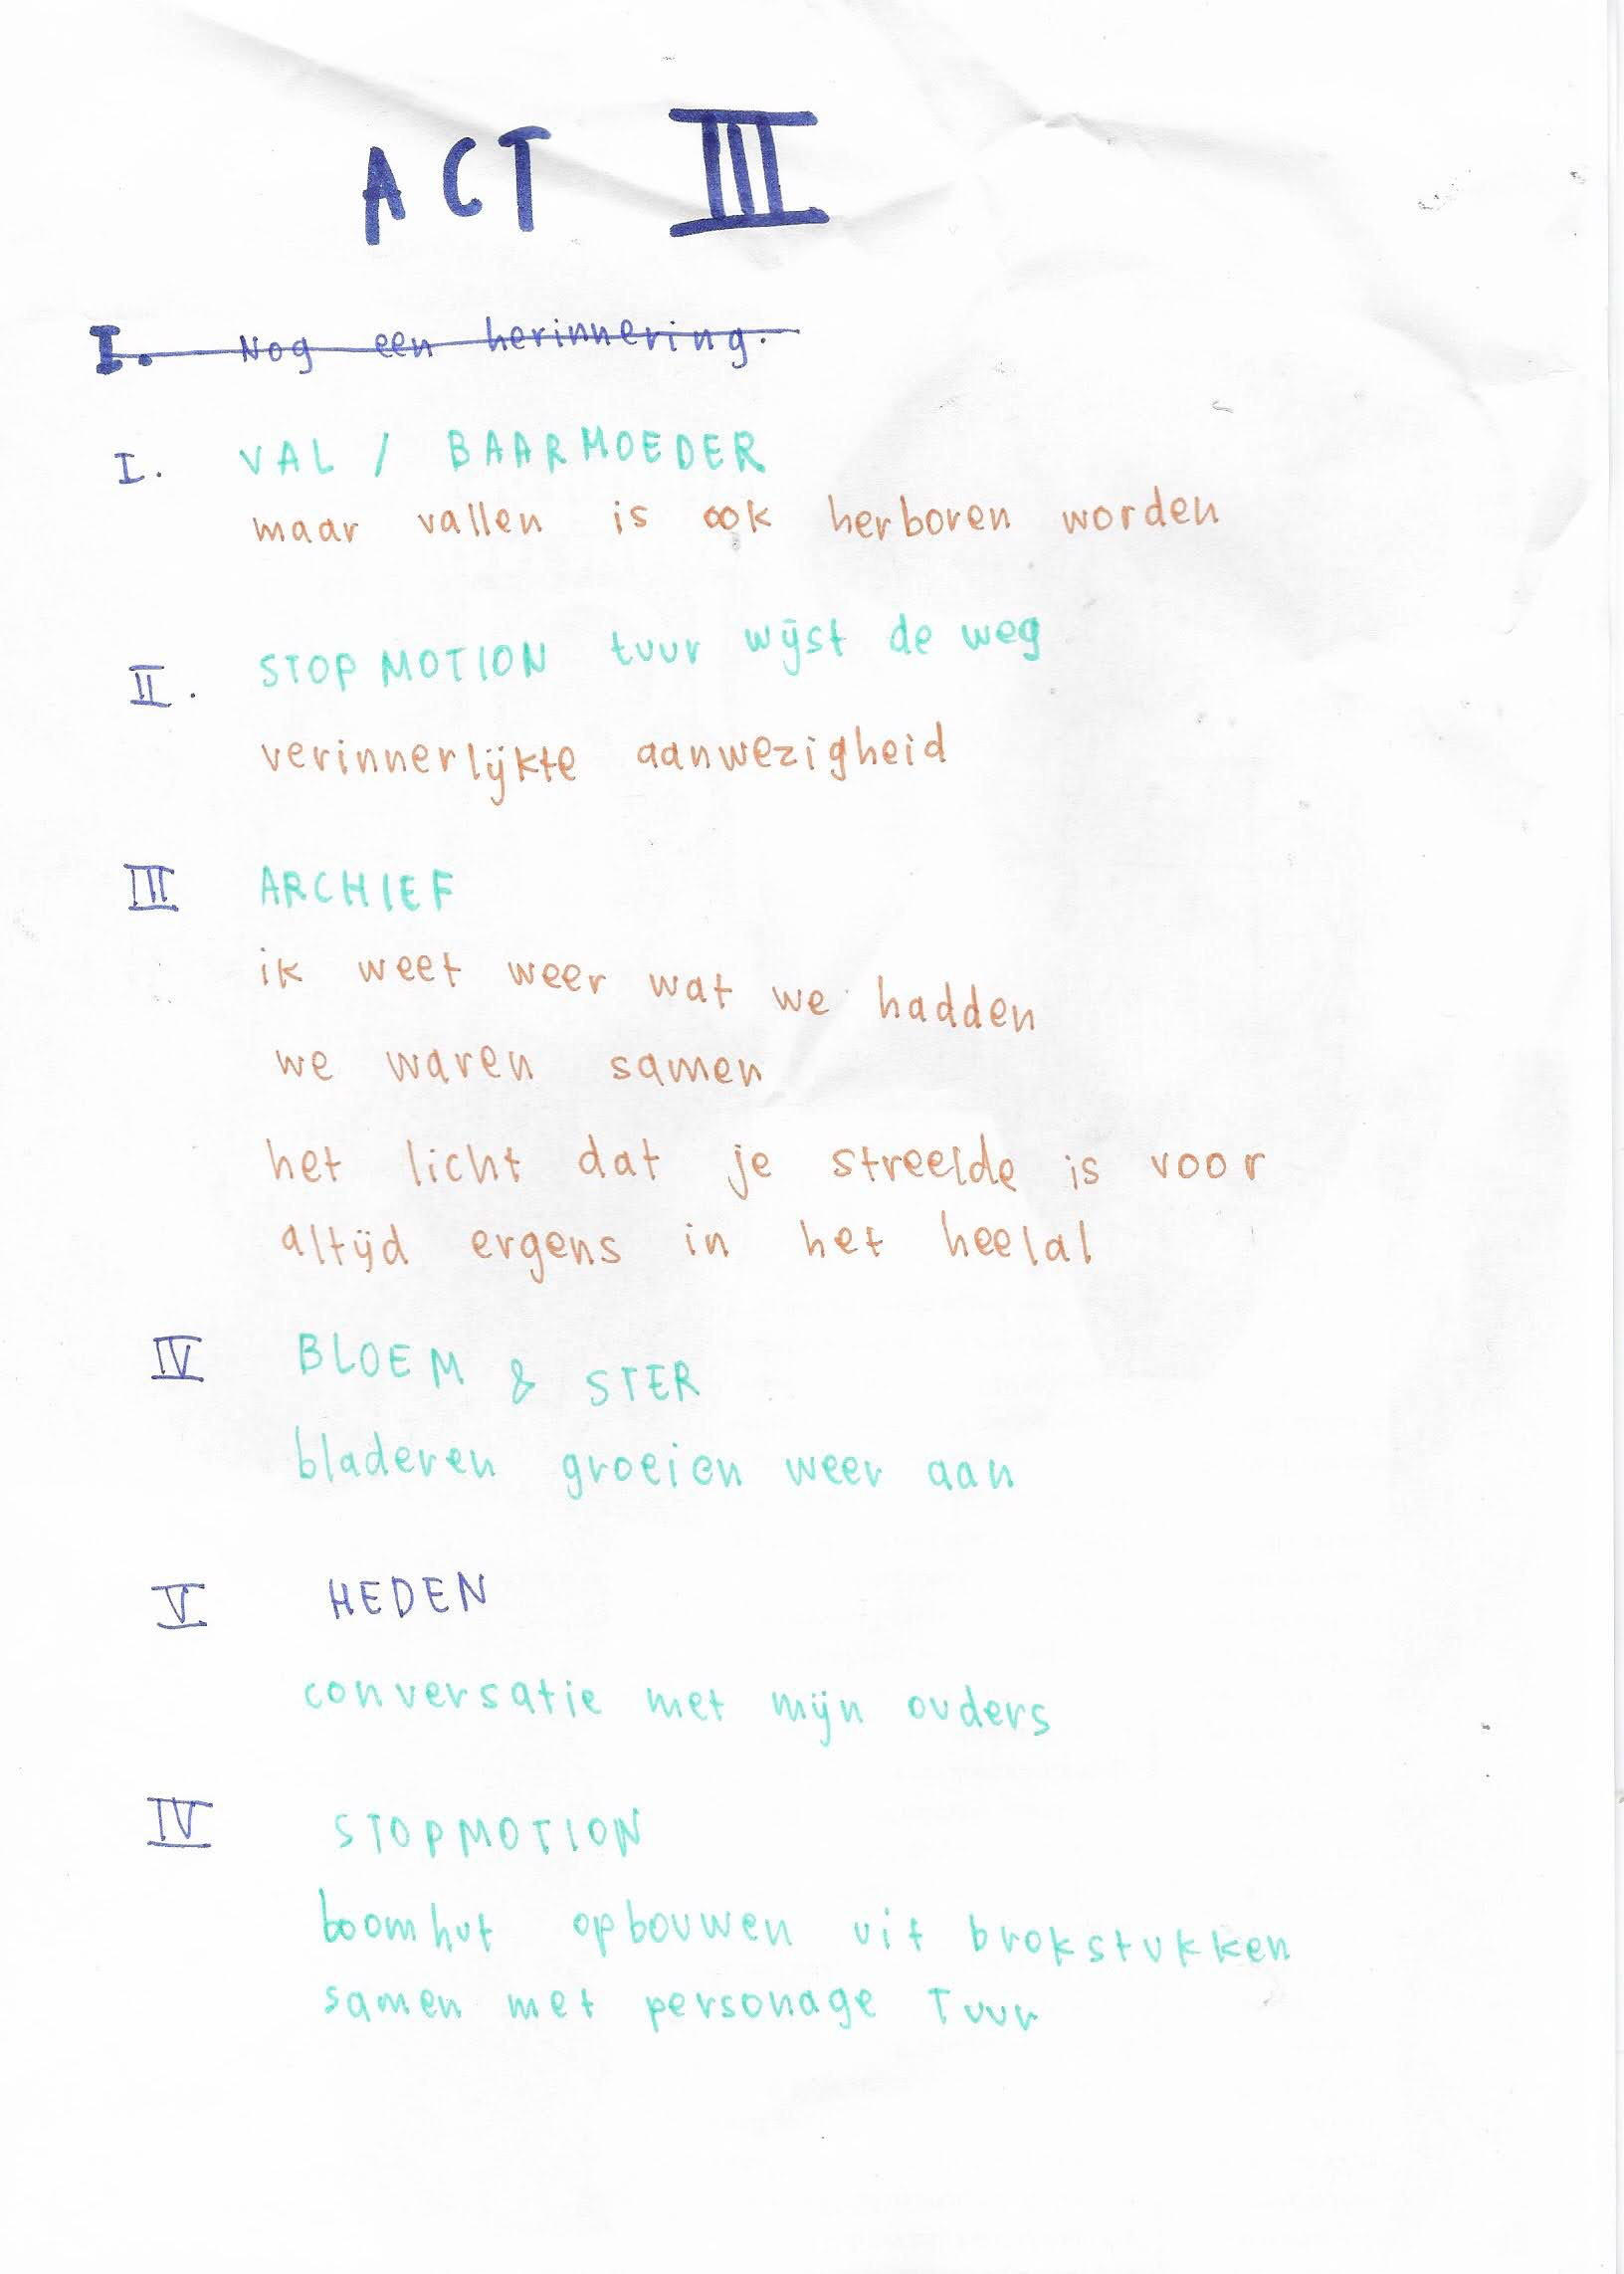 ACT III
I. Nog een herinnering.
I. VAL / BAARMOEDER
maar vallen is ook herboren worden
II. STOP MOTION tuur wijst de weg
verinnerlijkte aanwezigheid
III ARCHIEF
ik weet weer wat we hadden
we waren samen
het licht dat je streelde is voor
altijd ergens in het heelal
IV BLOEM & STER
bladeren groeien weer aan
V HEDEN
conversatie met mijn ouders
IV STOPMOTION
boomhut opbouwen uit brokstukken
samen met personage Tuur